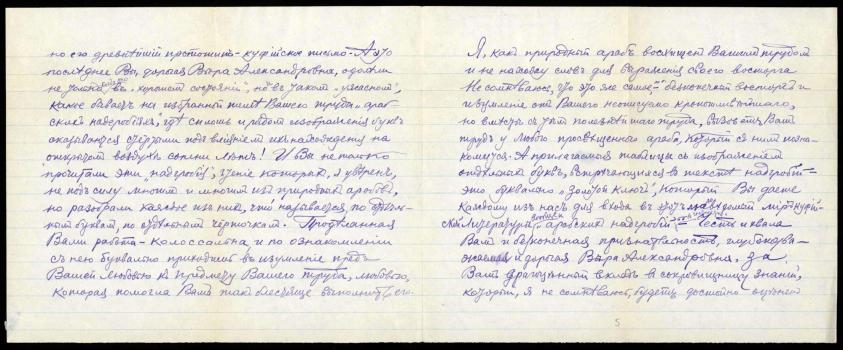 но его древнѣйшій прототипъ - куфійское письмо. А это
послѣднее Вы, дорогая Вѣра Александровна, одолѣли
не только въ "хорошемъ состояніи", но въ такомъ "ужасномъ",
какое бываетъ на избранной темѣ Вашего труда "араб-
скихъ надгробіяхъ", гдѣ сплошь и рядомъ изображенія буквъ
оказываются стертыми подъ вліяніемъ ихъ нахожденія на
открытомъ воздухѣ сотни лѣтъ! И Вы не только
прочитали эти "надгробія", чтеніе которыхъ, я увѣренъ,
не подъ силу многимъ и многимъ изъ природныхъ арабовъ,
но разобрали каждое изъ нихъ, что называется, по
нымъ буквамъ, по отдѣльнымъ чёрточкамъ. Продѣланная
Вами работа - колоссальна, и по ознакомленіи
съ нею буквально приходишь въ изумленіе предъ
Вашей любовью къ предмету Вашего труда, любовью,
которая помогла Вамъ такъ блестяще выполнить его.
Я, какъ природный арабъ восхищенъ Вашимъ трудомъ
и не нахожу словъ для выраженія своего восторга
Не сомнѣваюсь, что это же самое - безконечный восторгъ и
изумленіе отъ Вашего неописуемо кропотливѣйшаго,
но вмѣстѣ съ тѣмъ полезнѣйшаго труда, вызоветъ Вашъ
трудъ у любого просвѣщеннаго араба, который съ нимъ позна-
комится. А прилагаемыя таблицы съ изображеніемъ
отдѣльныхъ буквъ, встрѣчающихся въ текстѣ надгробій -
это буквально "золотой ключъ", который Вы даете
каждому изъ насъ для входа въ этотъ міръ куфій-
ской литературы арабскихъ надгробій. Честь и хвала
Вамъ и безконечная признательность, глубокоува-
жаемая и дорогая Вѣра Александровна, за
Вашъ вкладъ въ сокровищницу знаній,
который, я не сомнѣваюсь, будетъ достойно оцѣненъ
5